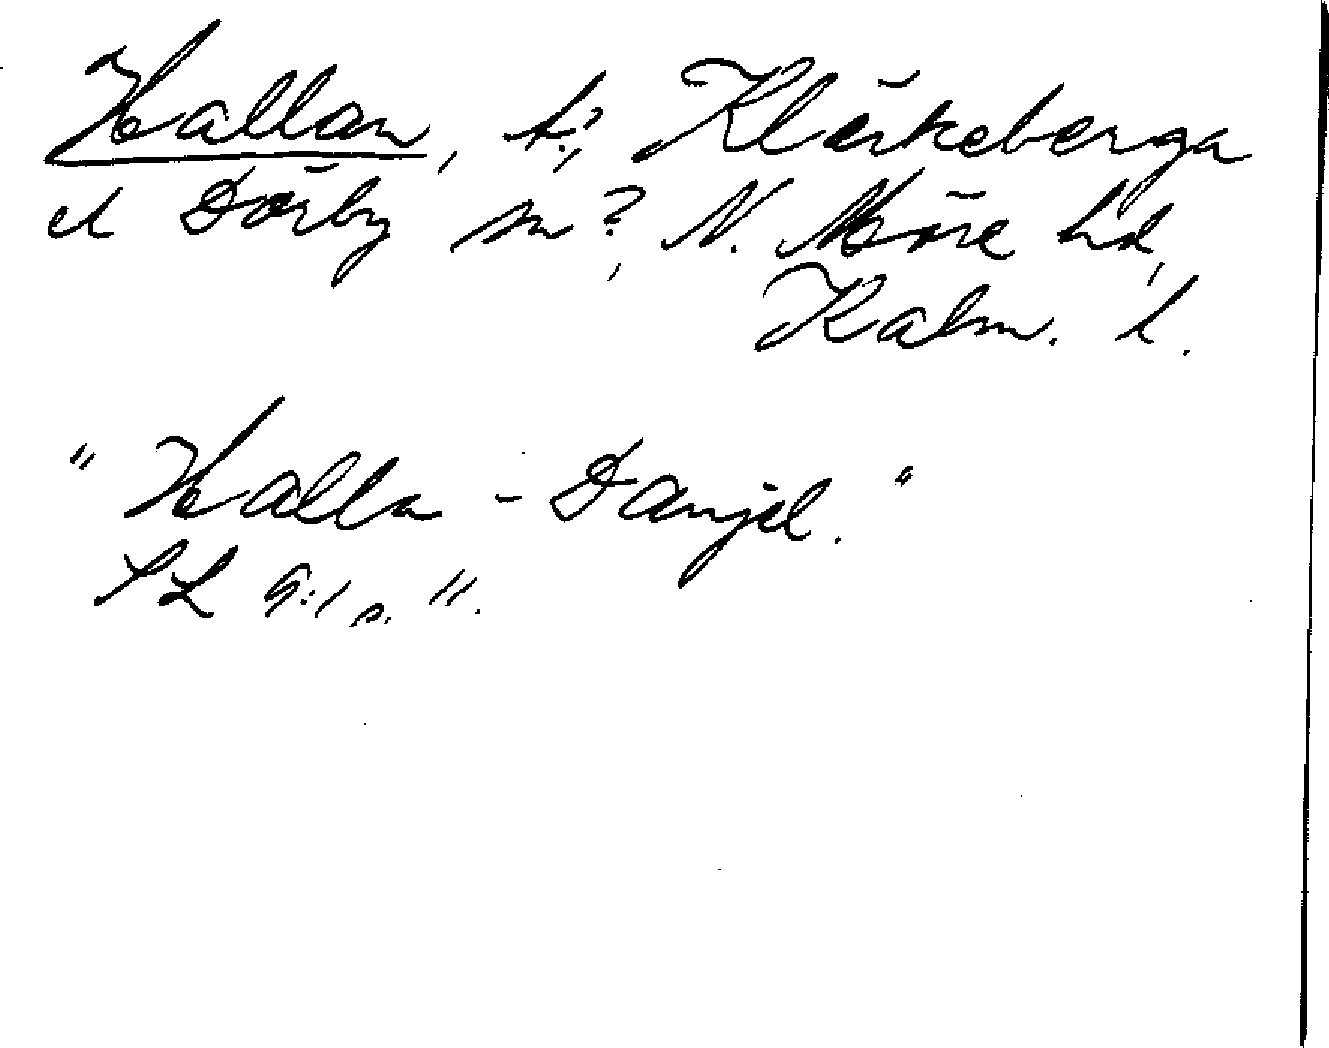 Hallan, t.?, Kläckeberga
el Dörby sn?, N. Möre hd,
Kalm. l.
"Halla-Danjel."
SL 9:1 s. 11.